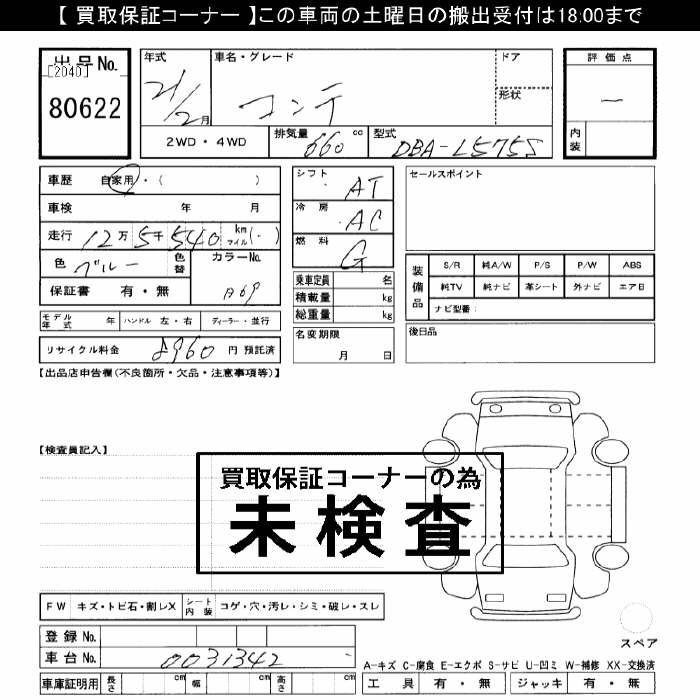 【 買取保証コーナー 】この車両の土曜日の搬出受付は18:00まで
出品No.
[2040]
80622
年式
21/2月
車名・グレード
コンテ
ドア
形状
2WD・4WD
排気量 660 cc
型式 DBA-L575S
評価点
ー
内装
車歴 自家用・( )
車検 年 月
走行 12万5千540 km マイル (・)
色 ブルー 色替
カラーNo. B69
保証書 有・無
シフト AT
冷房 AC
燃料 G
乗車定員 名
積載量 kg
総重量 kg
セールスポイント
装備品
S/R 純A/W P/S P/W ABS
純TV 純ナビ 革シート 外ナビ エアB
ナビ型番:
モデル年式 年 ハンドル 左・右 ディーラー・並行
名変期限
月 日
後日品
リサイクル料金 8960 円 預託済
【出品店申告欄(不良箇所・欠品・注意事項等)】
【検査員記入】
買取保証コーナーの為
未検査
FW キズ・トビ石・割レX シート内装 コゲ・穴・汚レ・シミ・破レ・スレ
スペア
登録No.
車台No. 0031342
A-キズ C-腐食 E-エクボ S-サビ U-凹ミ W-補修 XX-交換済
車庫証明用 長さ cm 幅 cm 高さ cm
工具 有・無 ジャッキ 有・無